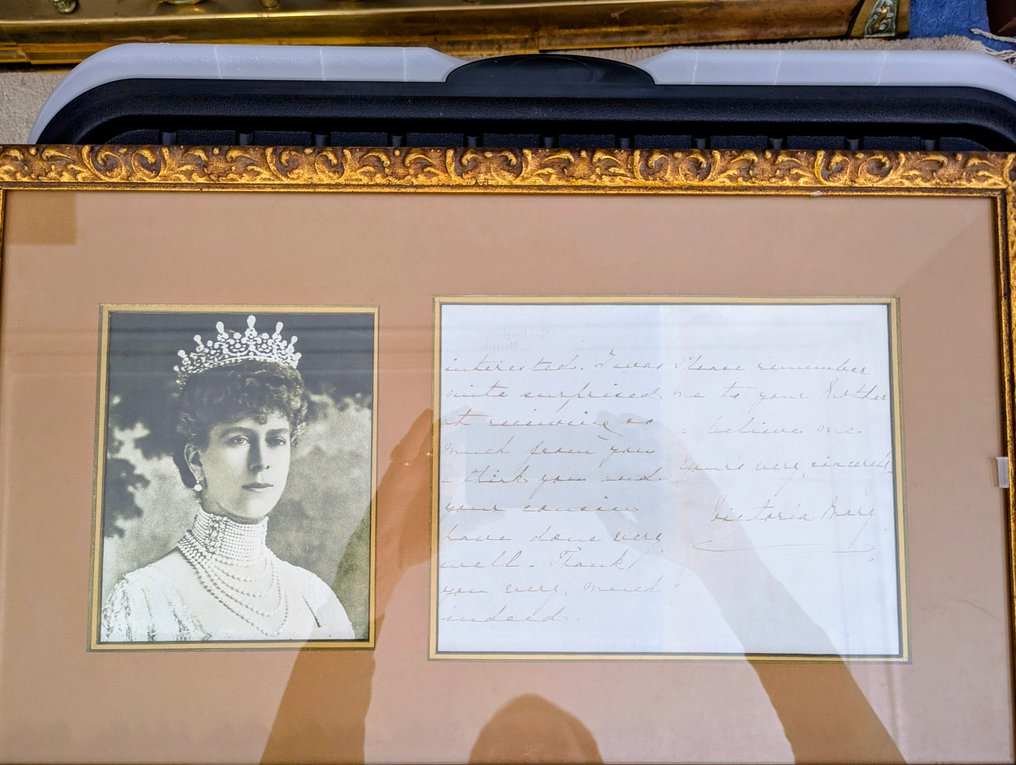 interested. I was
quite surprised
at receiving so
much from you
I think you and
your cousin
have done very
well. Thank
you very much
indeed.
Please remember
me to your Mother
& believe me
Yours very sincerely
Victoria Mary